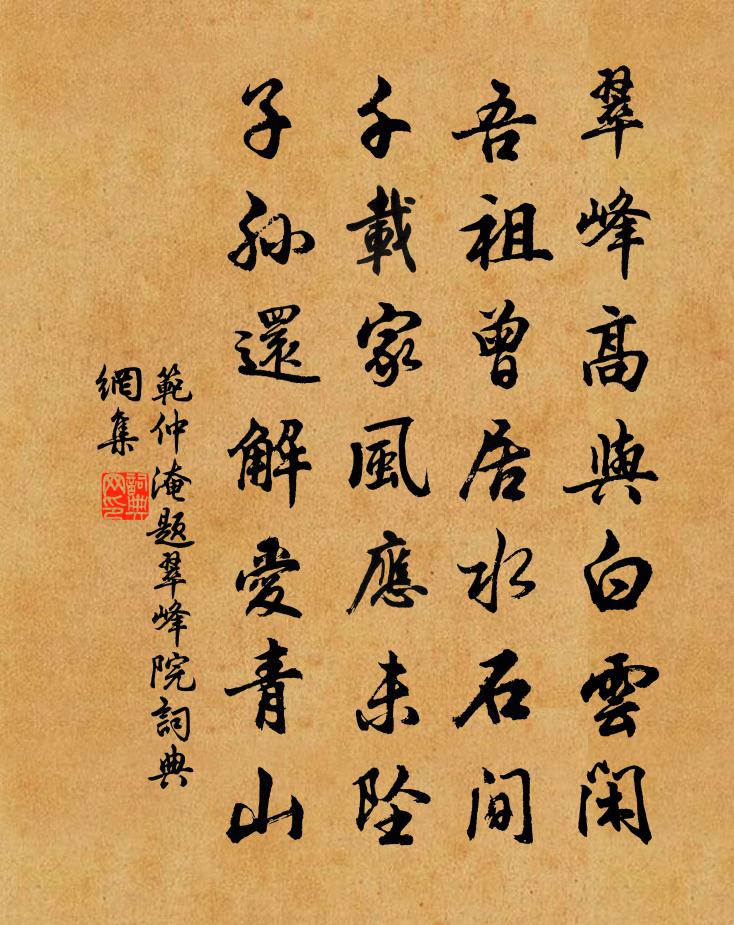 翠峰高與白雲閑
吾祖曾居水石間
千載家風應未墜
子孫還解愛青山
範仲淹題翠峰院詞典
網集
詞典
网印